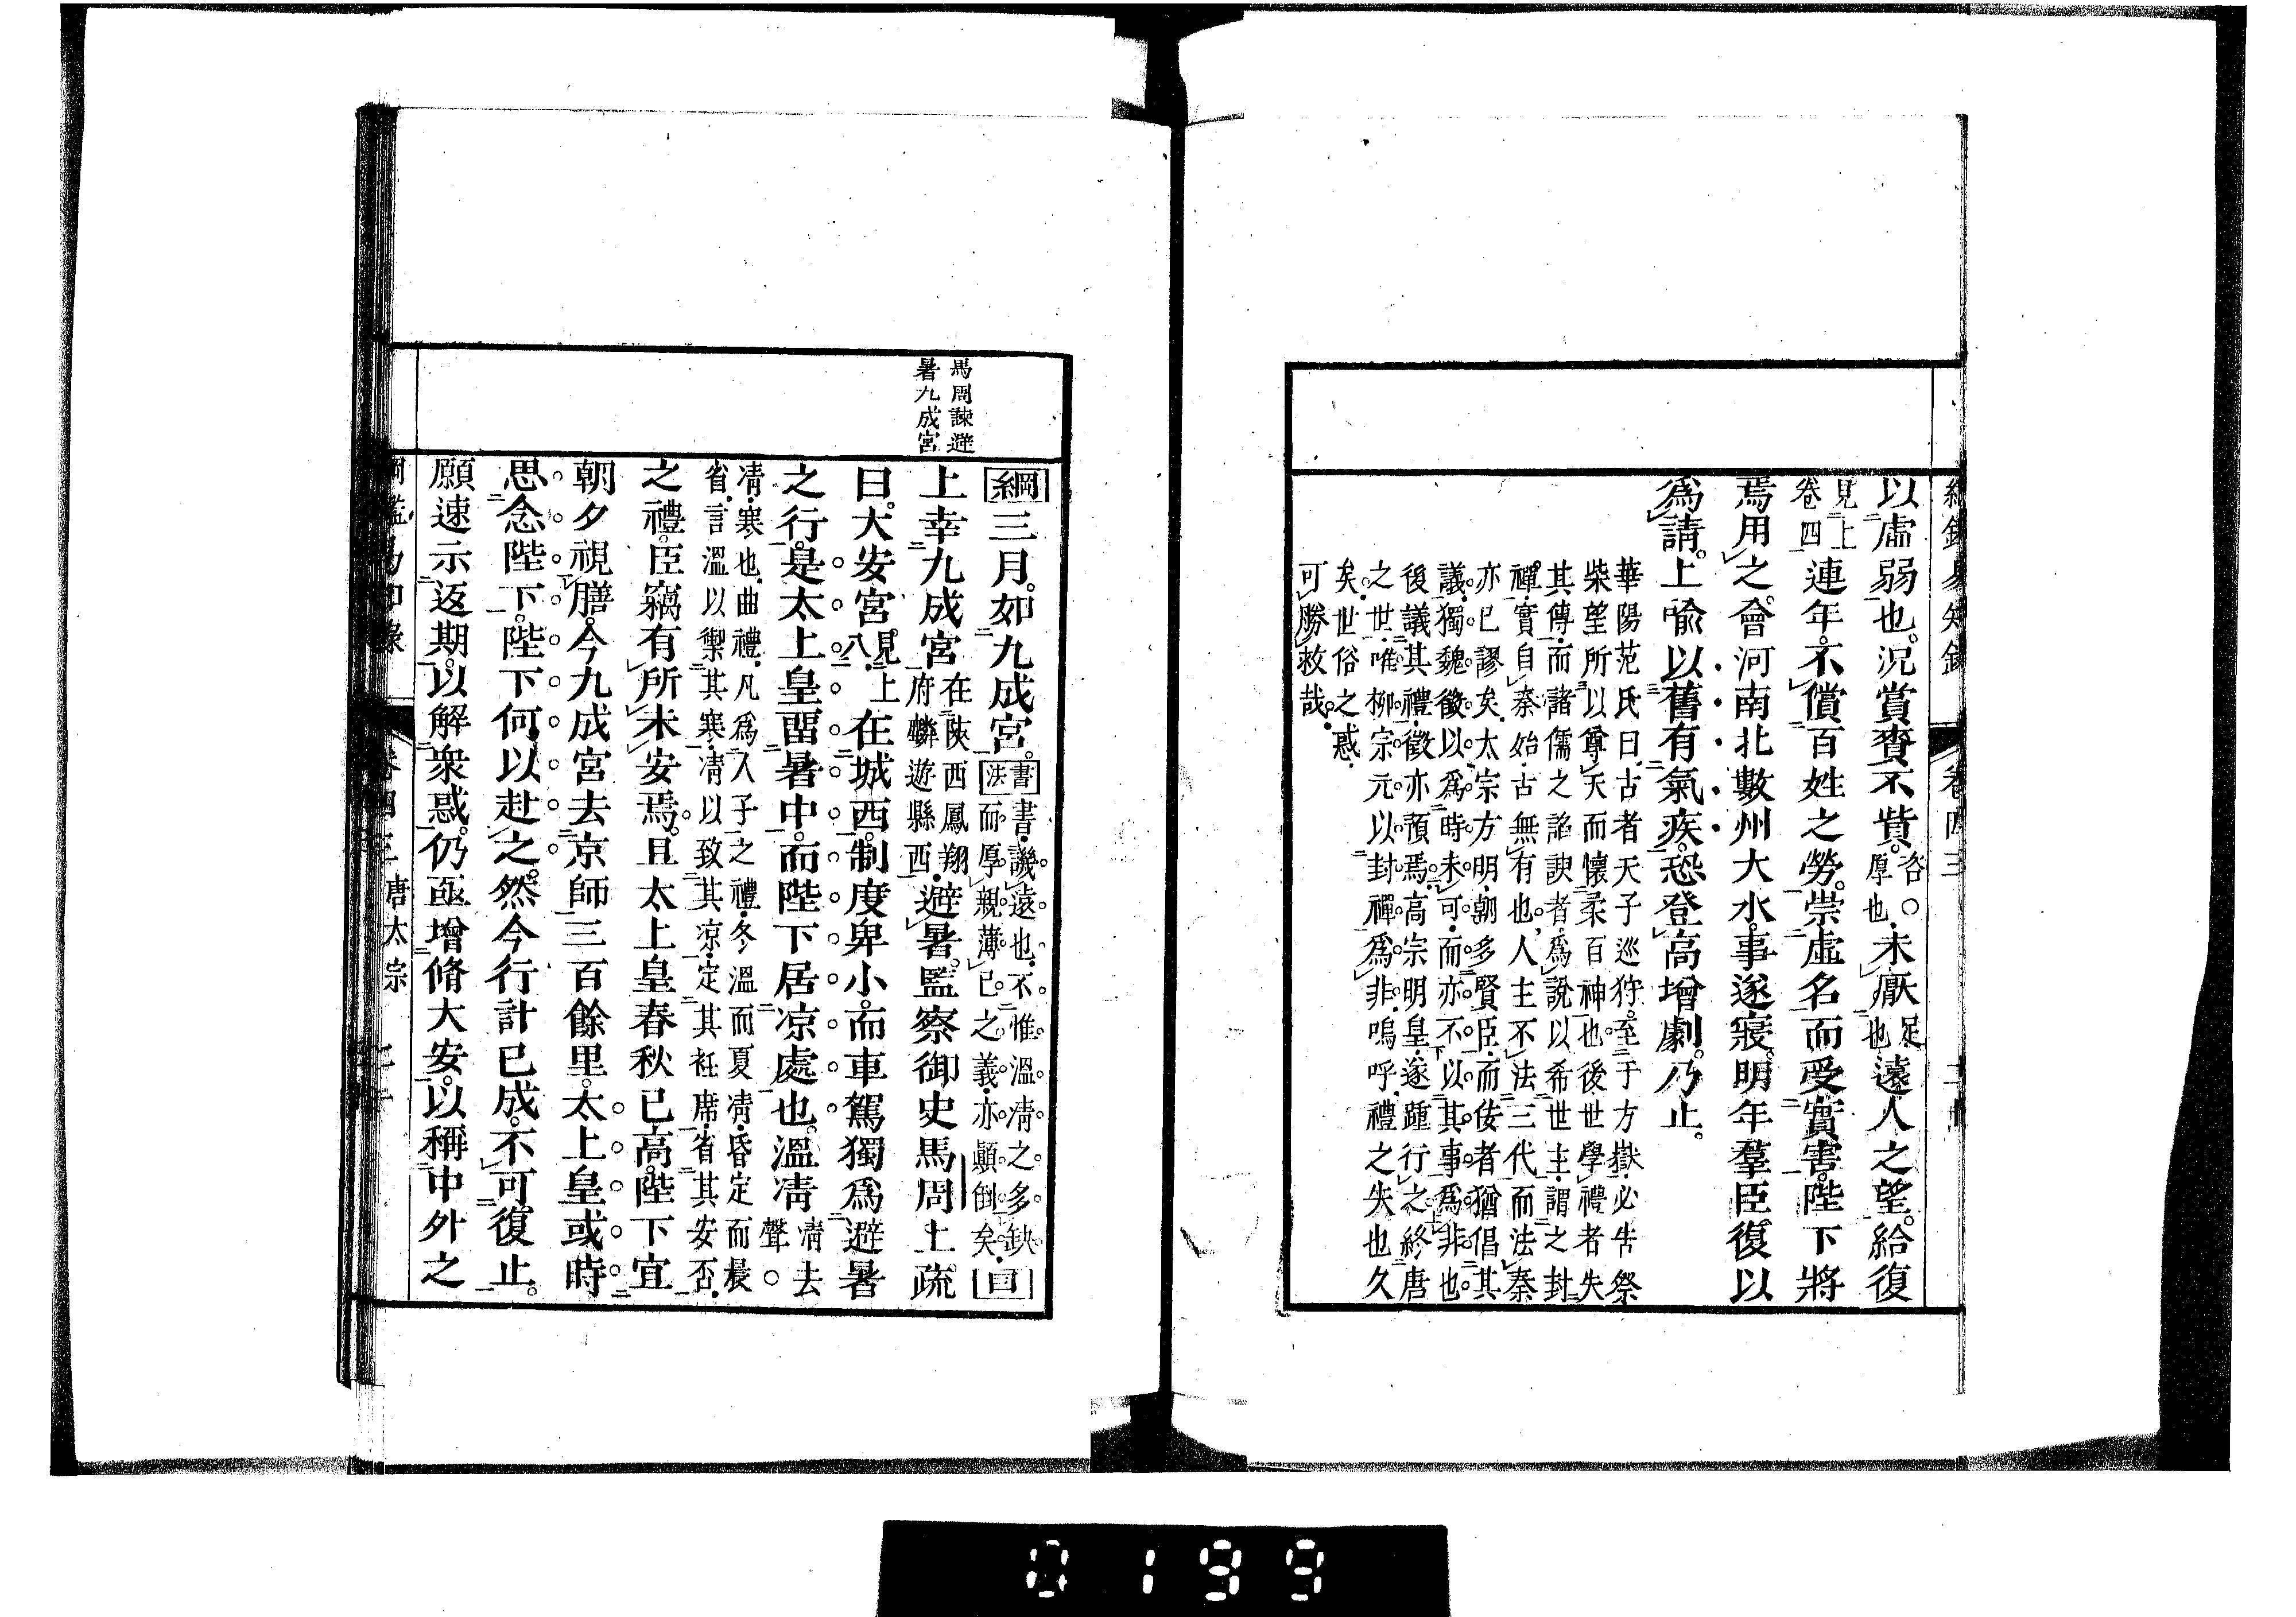 以虛弱也。况賞賚不貲。咨○厚也。未厭足也遠人之望。給復
見上卷四連年。不償百姓之勞。崇虛名而受實害。陛下將
焉用之。會河南北數州大水。事遂寢。明年羣臣復以
爲請。上喻以舊有氣疾。恐登高增劇。乃止。
華陽范氏曰。古者天子巡狩。至于方嶽。必告祭
柴望。所以尊天而懷柔百神也。後世學禮者失
其傳。而諸儒之諂諛者。爲說以希世主。謂之封
禪。實自秦始。古無有也。人主不法三代而法秦。
亦已謬矣。太宗方明。朝多賢臣。而佞者猶倡其
議。獨魏徵以爲時未可。而亦不以其事爲非也。
後議其禮。徵亦預焉。高宗明皇。遂踵行之。終唐
之世。唯柳宗元以封禪爲非。嗚呼。禮之失也久
矣。世俗之惑。
可勝救哉。
馬周諫避
暑九成宮
綱三月。如九成宮。書法書。譏遠也。不惟溫凊之多缺。而厚親薄已之義。亦顚倒矣。目
上幸九成宮在陝西鳳翔府麟遊縣西。避暑。監察御史馬周上疏
曰。大安宮。見上八。在城西。制度卑小。而車駕獨爲避暑
之行。是太上皇畱暑中。而陛下居凉處也。溫凊凊去聲○
凊。寒也。曲禮。凡爲人子之禮。冬溫而夏凊。昏定而晨
省。言溫以禦其寒。凊以致其凉。定其衽席。省其安否。
之禮。臣竊有所未安焉。且太上皇春秋已高。陛下宜
朝夕視膳。今九成宮去京師三百餘里。太上皇或時
思念陛下。陛下何以赴之。然今行計已成。不可復止。
願速示返期。以解衆惑。仍亟增脩大安。以稱中外之
卷四三 唐太宗
0199